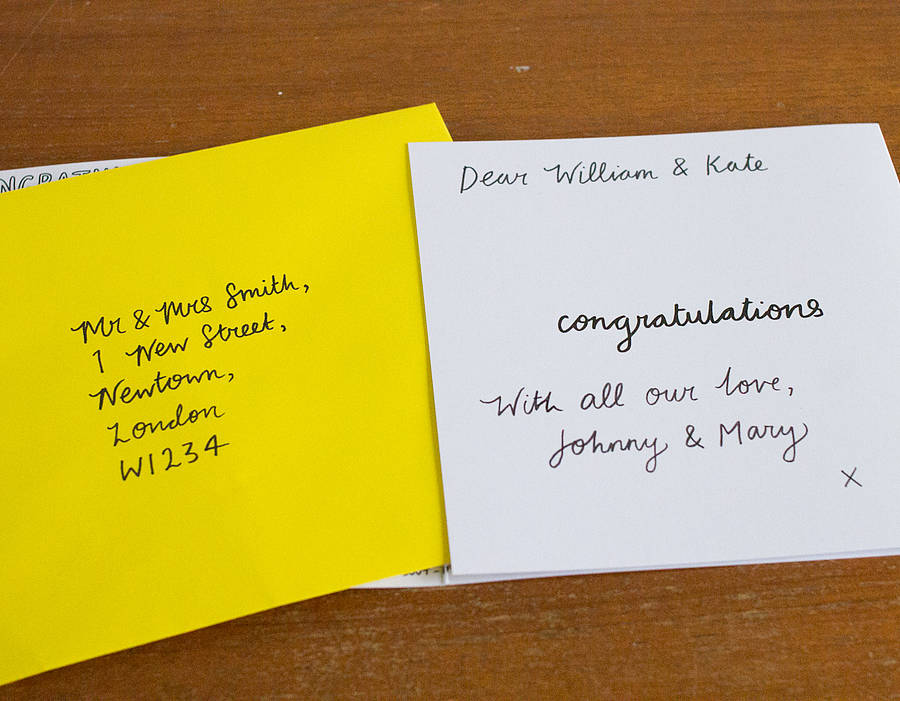 Mr & Mrs Smith,
1 New Street,
Newtown,
London
W1234
Dear William & Kate
congratulations
With all our love,
Johnny & Mary
X